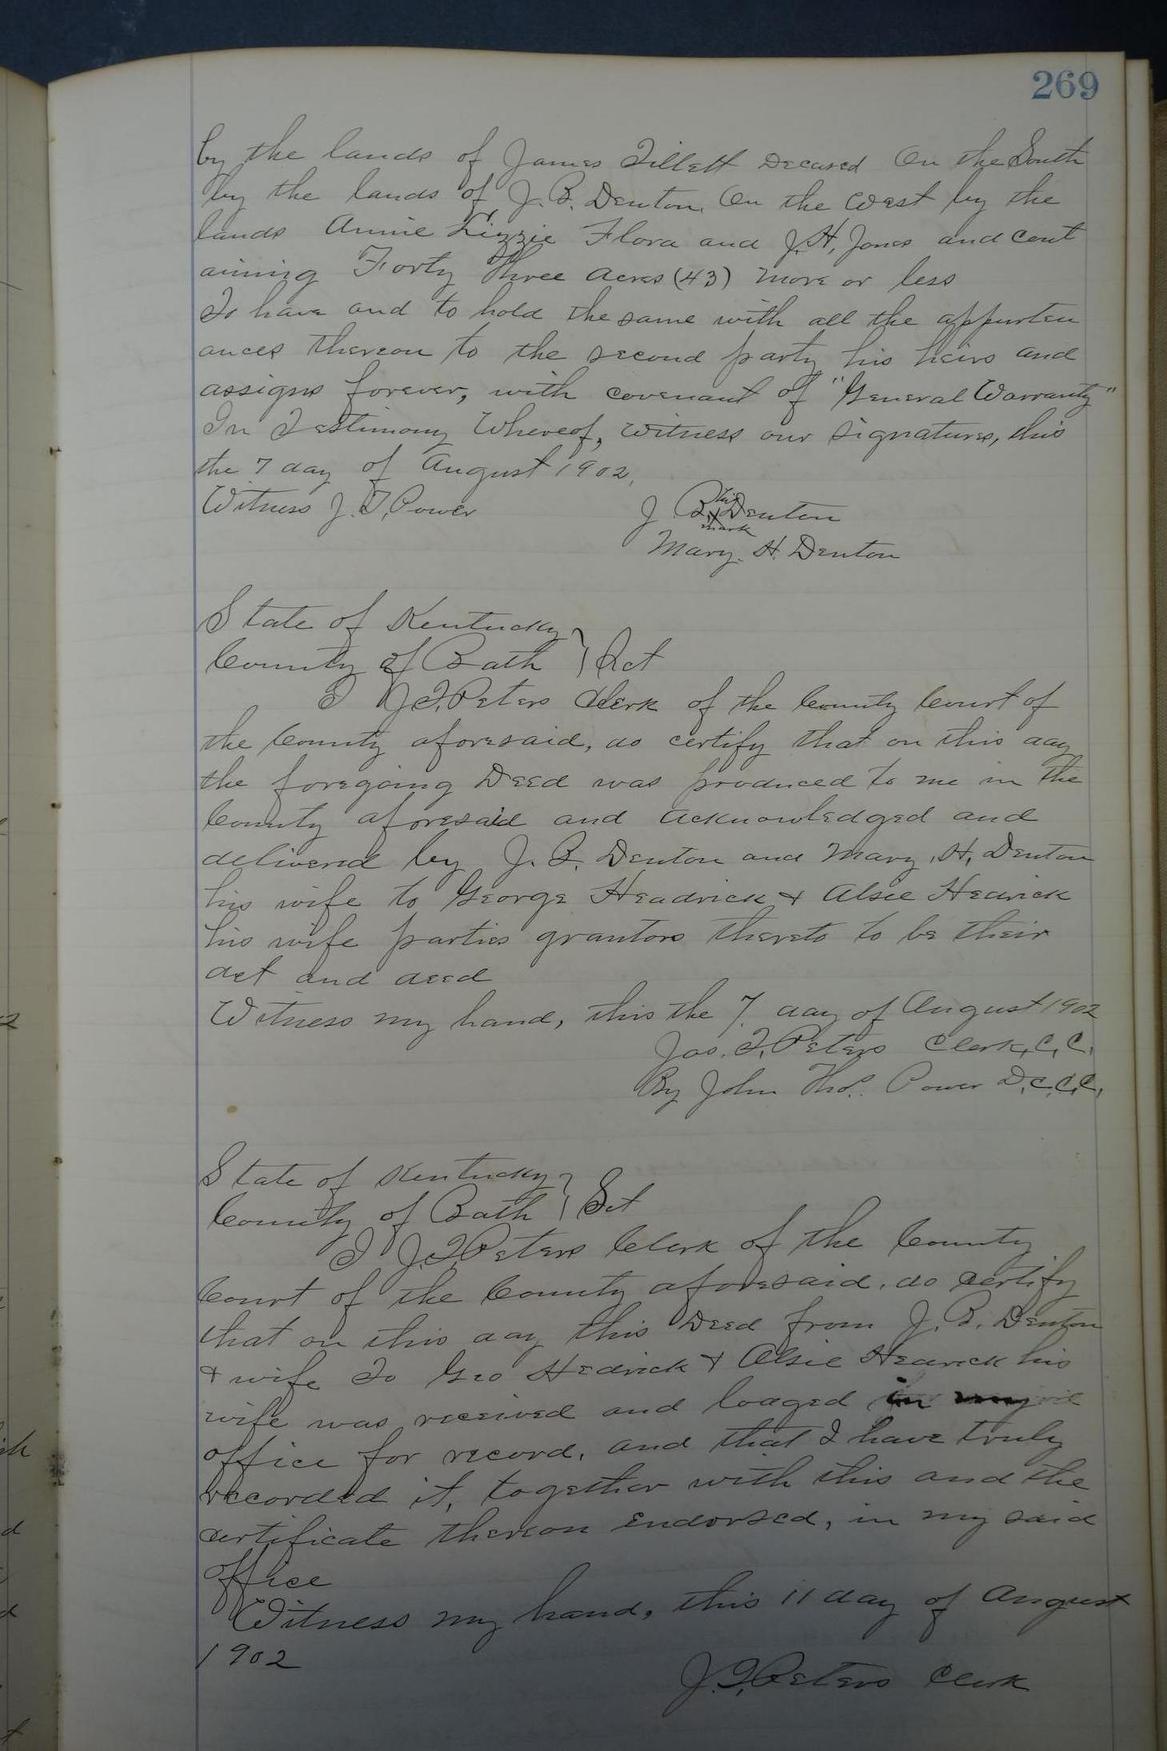 269
by the lands of James Tillett Decased On the South
by the lands of J. B. Denton, On the West by the
lands Annie Lizzie Flora and J. H. Jones and cont
aining Forty Three Acres (43) more or less
To have and to hold the same with all the appurten
ances thereon to the second party his heirs and
assigns forever, with covenant of "General Warranty"
In Testimony Whereof, witness our signatures, this
the 7 day of August 1902,
Witness J. T. Power
his
J B. X Denton
mark
Mary. H. Denton
State of Kentucky
County of Bath } Sct
I J. T. Peters Clerk of the County Court of
the County aforesaid, do certify that on this day
the foregoing Deed was produced to me in the
County aforesaid and acknowledged and
delivered by J. B. Denton and Mary. H. Denton
his wife to George Headrick & Alsie Hedrick
his wife parties grantors thereto to be their
act and deed
Witness my hand, this the 7. day of August 1902
Jas. T. Peters Clerk, C, C,
By John Thos. Power D, C, C, C,
State of Kentucky
County of Bath } Sct
I J. T. Peters Clerk of the County
Court of the County aforesaid, do certify
that on this day this Deed from J. B. Denton
& wife To Geo Hedrick & Alsie Hedrick his
wife was received and lodged in my
office for record, and that I have truly
recorded it, together with this and the
certificate thereon endorsed, in my said
office
Witness my hand, this 11 day of August
1902
J. T. Peters Clerk